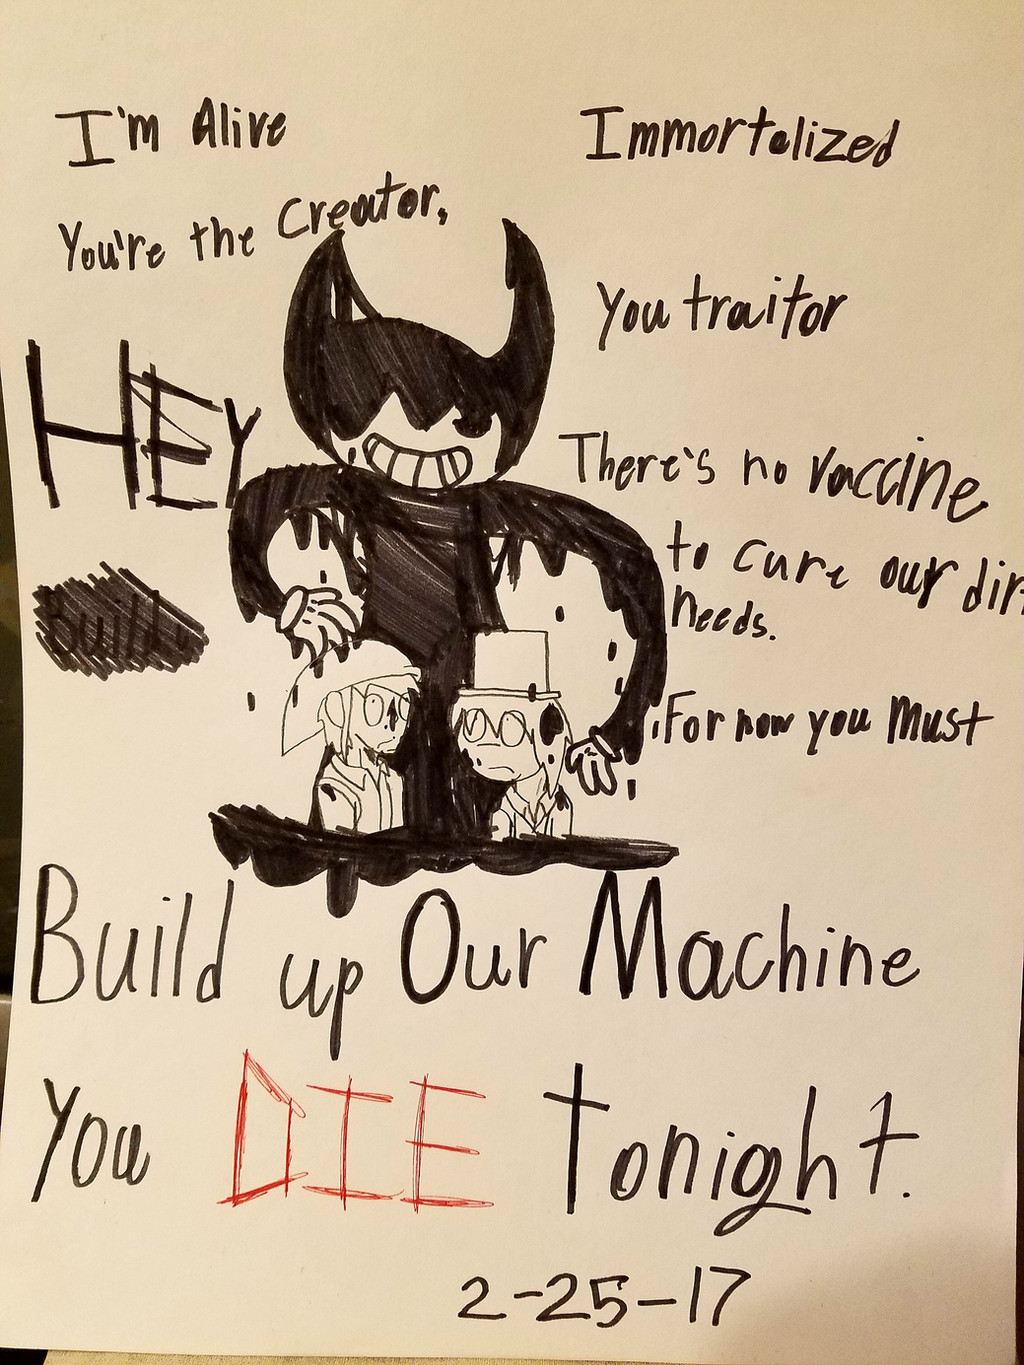 I'm Alive
Immortalized
You're the Creator,
You traitor
HEY
There's no vaccine
to cure our dir
needs.
Build u
For now you Must
Build up Our Machine
You DIE Tonight.
2-25-17